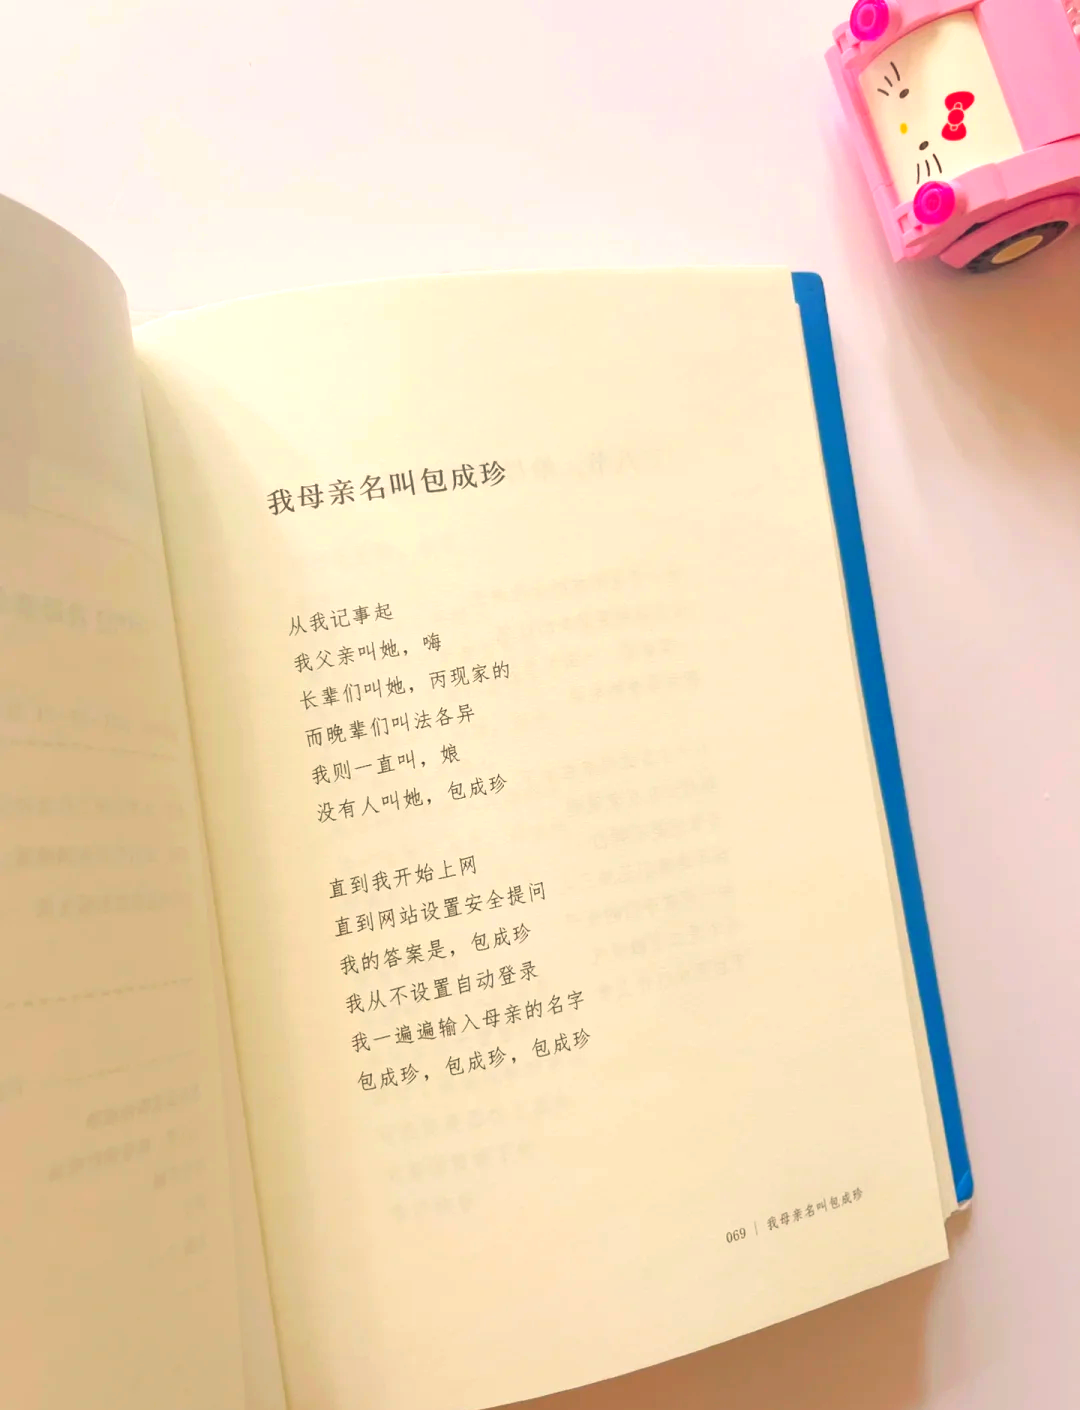 我母亲名叫包成珍
从我记事起
我父亲叫她，嗨
长辈们叫她，丙现家的
而晚辈们叫法各异
我则一直叫，娘
没有人叫她，包成珍
直到我开始上网
直到网站设置安全提问
我的答案是，包成珍
我从不设置自动登录
我一遍遍输入母亲的名字
包成珍，包成珍，包成珍
069 | 我母亲名叫包成珍